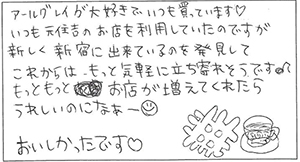 アールグレイが大好きで、いつも買っています♡
いつも元住吉のお店を利用していたのですが
新しく新宿に出来ているのを発見して
これからは、もっと気軽に立ち寄れそうです♪
もっともっとお店が増えてくれたら
うれしいのになぁー☺
おいしかったです♡